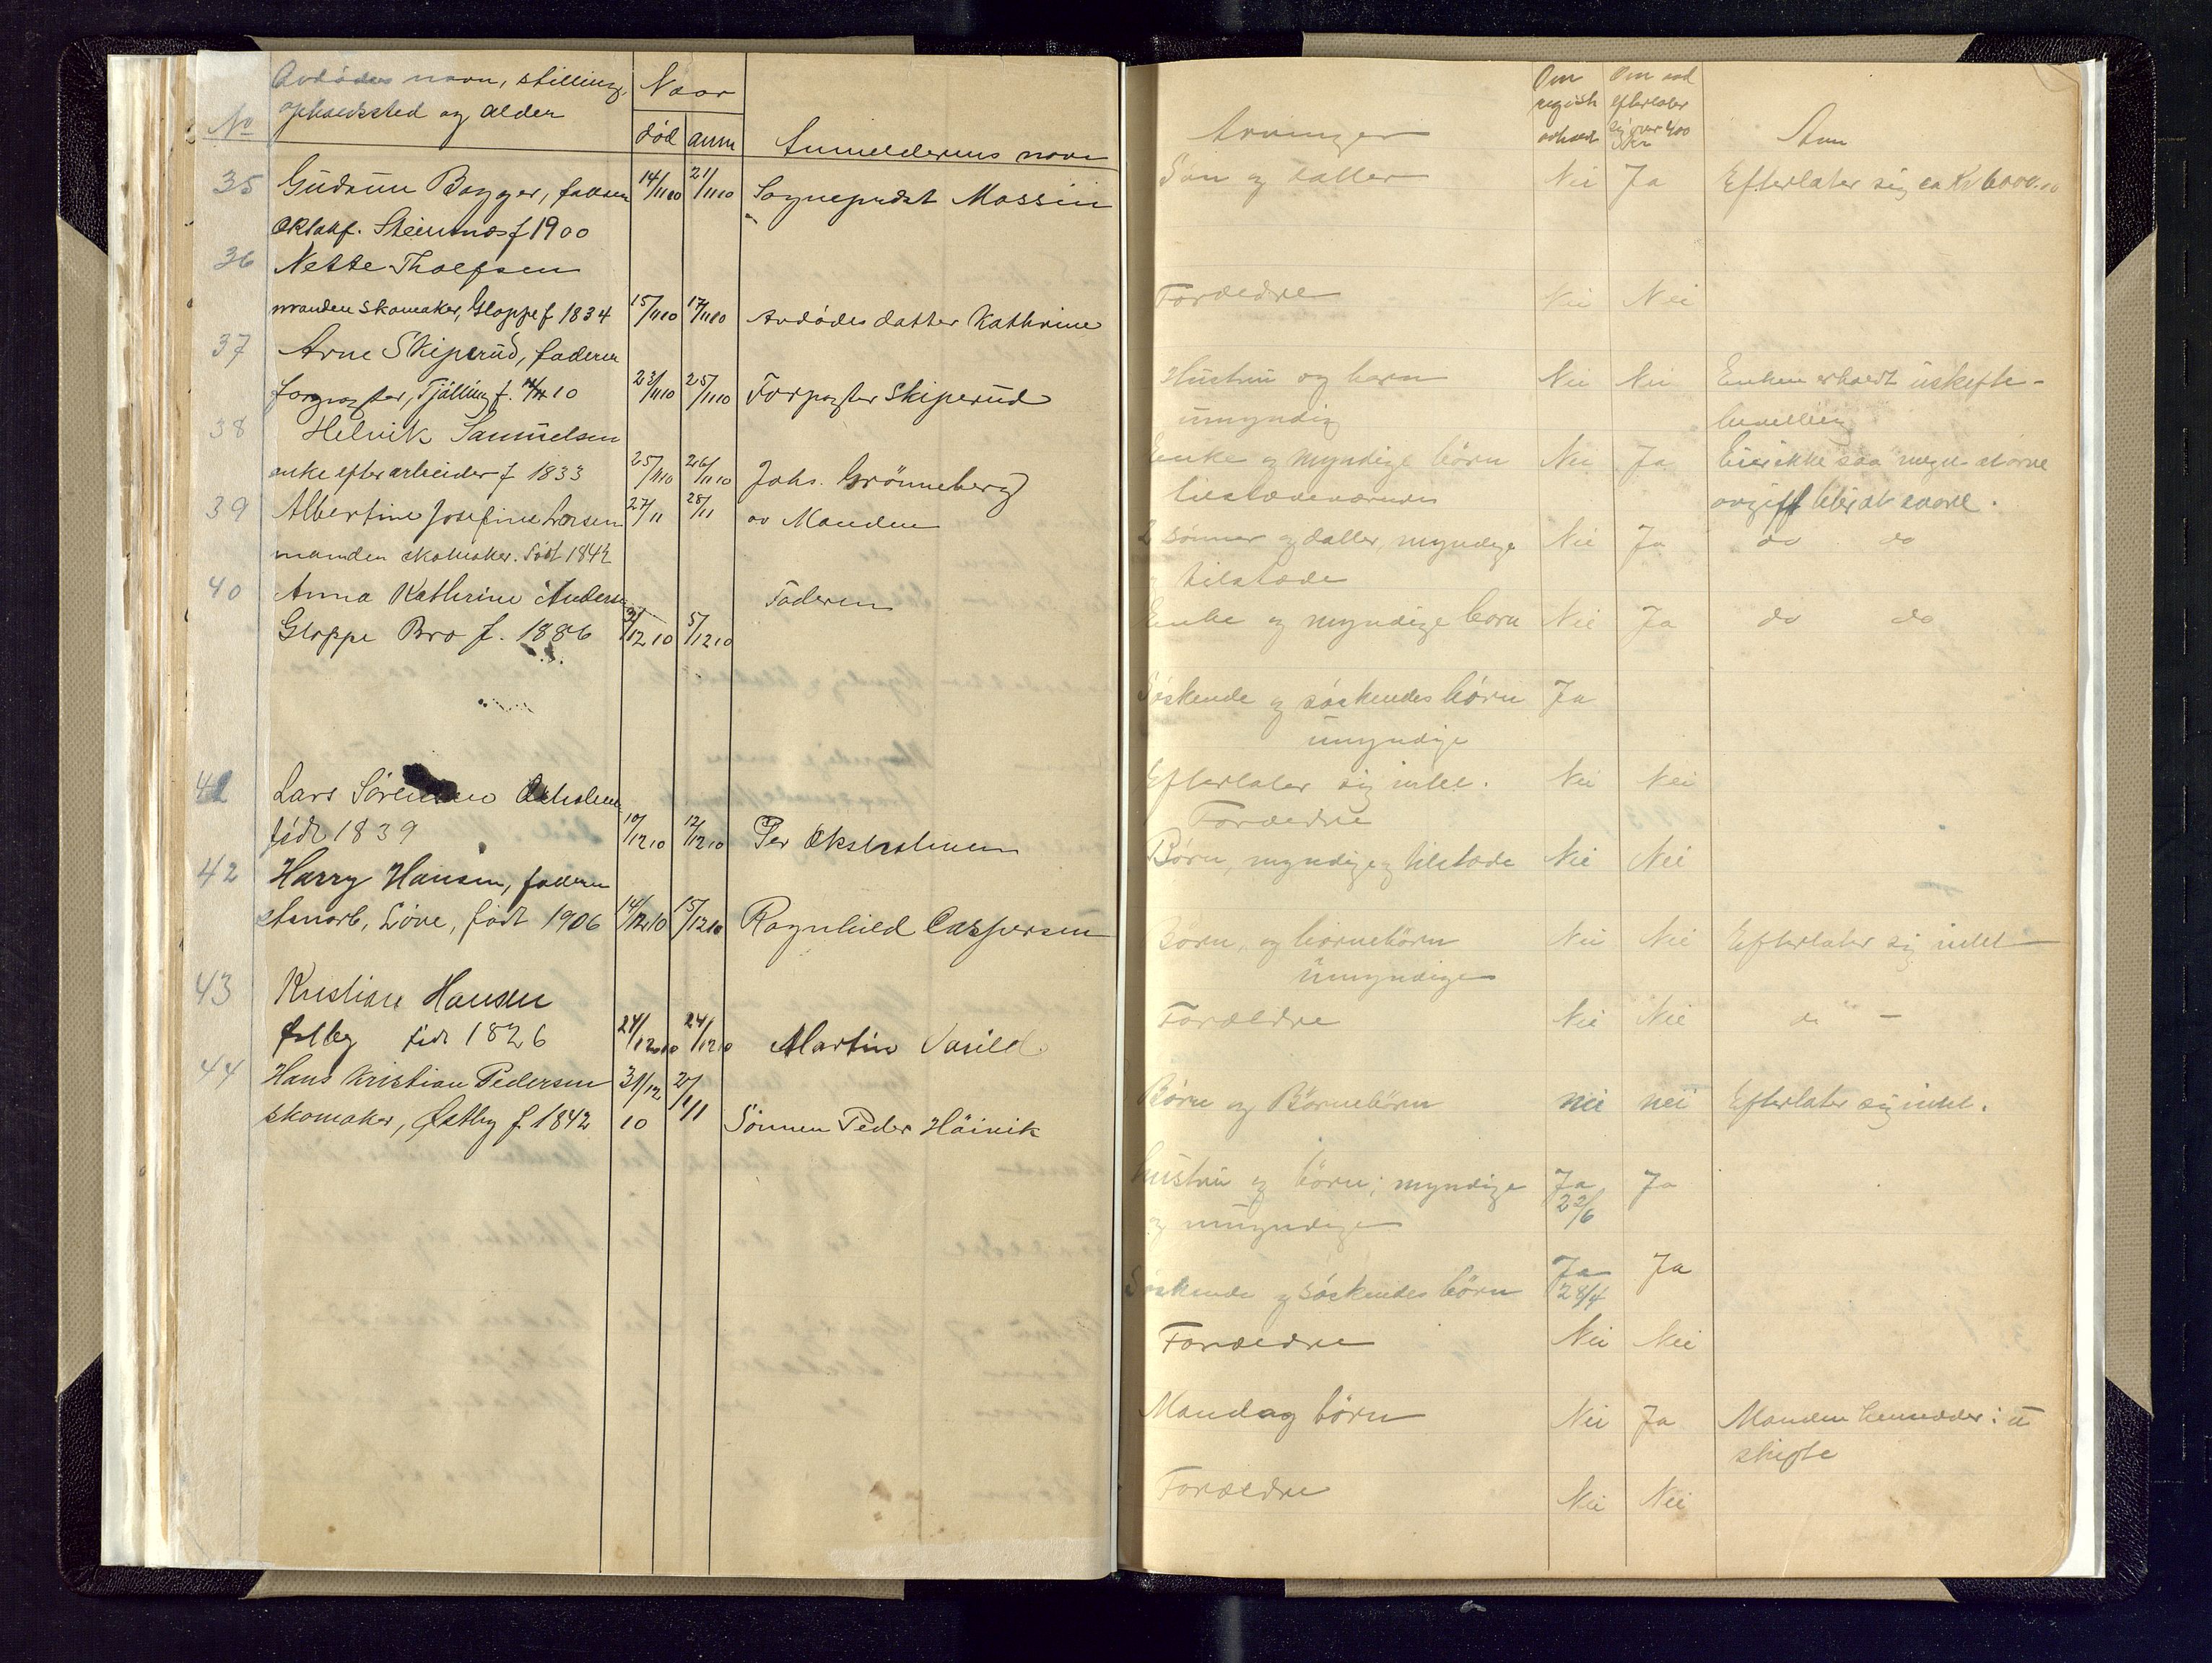 Avdødes navn, stilling,
opholdssted og alder
No
Naar
død anm
Anmelderens navn
35 Gudrun Bagger, faderen 14/11 10 21/11 10 Sogneprest Massin
f 1900
36 Nette Tholfsen
manden skomaker, Gloppe f 1834 15/11 10 17/11 10 Avdødes datter Kathrine
37 Arne Skiperud, faderen
forpagter, Tjølling f. 10 23/11 10 25/11 10 Forpagter Skiperud
38 Helvik Samuelsen
enke efter arbeider f 1833 25/11 10 26/11 10 Johs. Grönneberg
39 Albertine Josefine Larsen 27/11 28/11 av Manden
manden skomaker. Født 1842
40 Anna Kathrine Andersen Faderen
Gloppe Bro f. 1886 /12 10 5/12 10
Lars Sørensen
født 1839 10/12 10 12/12 10 Per Øksholmen
42 Harry Hansen, faderen
stenarb, Löve, født 1906 14/12 10 15/12 10 Ragnhild Caspersen
43 Kristian Hansen
Østby født 1826 21/12 10 24/12 10 Martin Vasild
44 Hans Kristian Pedersen 31/12
skomaker, Østby f. 1842 10 Sönnen Peder Häivik
Arvinger
Om
Om
efterlater
Anm
Søn og datter Nei Ja Efterlater sig ca Kr 6000.
Forældre Nei Nei
Hustru og barn Nei Nei Enken erholdt uskifte-
umyndig bevilling
Enke og myndige børn Nei Ja Eier ikke saa meget at arve
tilstedeværende avgift blir at svare.
2 sønner og datter, myndige Nei Ja do do
tilstede
Enke og myndige børn Nei Ja do do
Søskende og søskendes børn Ja
umyndige
Efterlater sig intet. Nei Nei
Forældre
Børn, myndige og tilstede Nei Nei
Børn, og børnebørn Nei Nei Efterlater sig intet
umyndige
Forældre Nei Nei
Børn og Børnebørn nei nei Efterlater sig intet.
Hustru og børn; myndige Ja Ja
og umyndige 22/6
Søskende og søskendes børn Ja 28/4 Ja
Forældre Nei Nei
Mand og børn Nei Ja Manden hensidder i u
skifte
Forældre Nei Nei